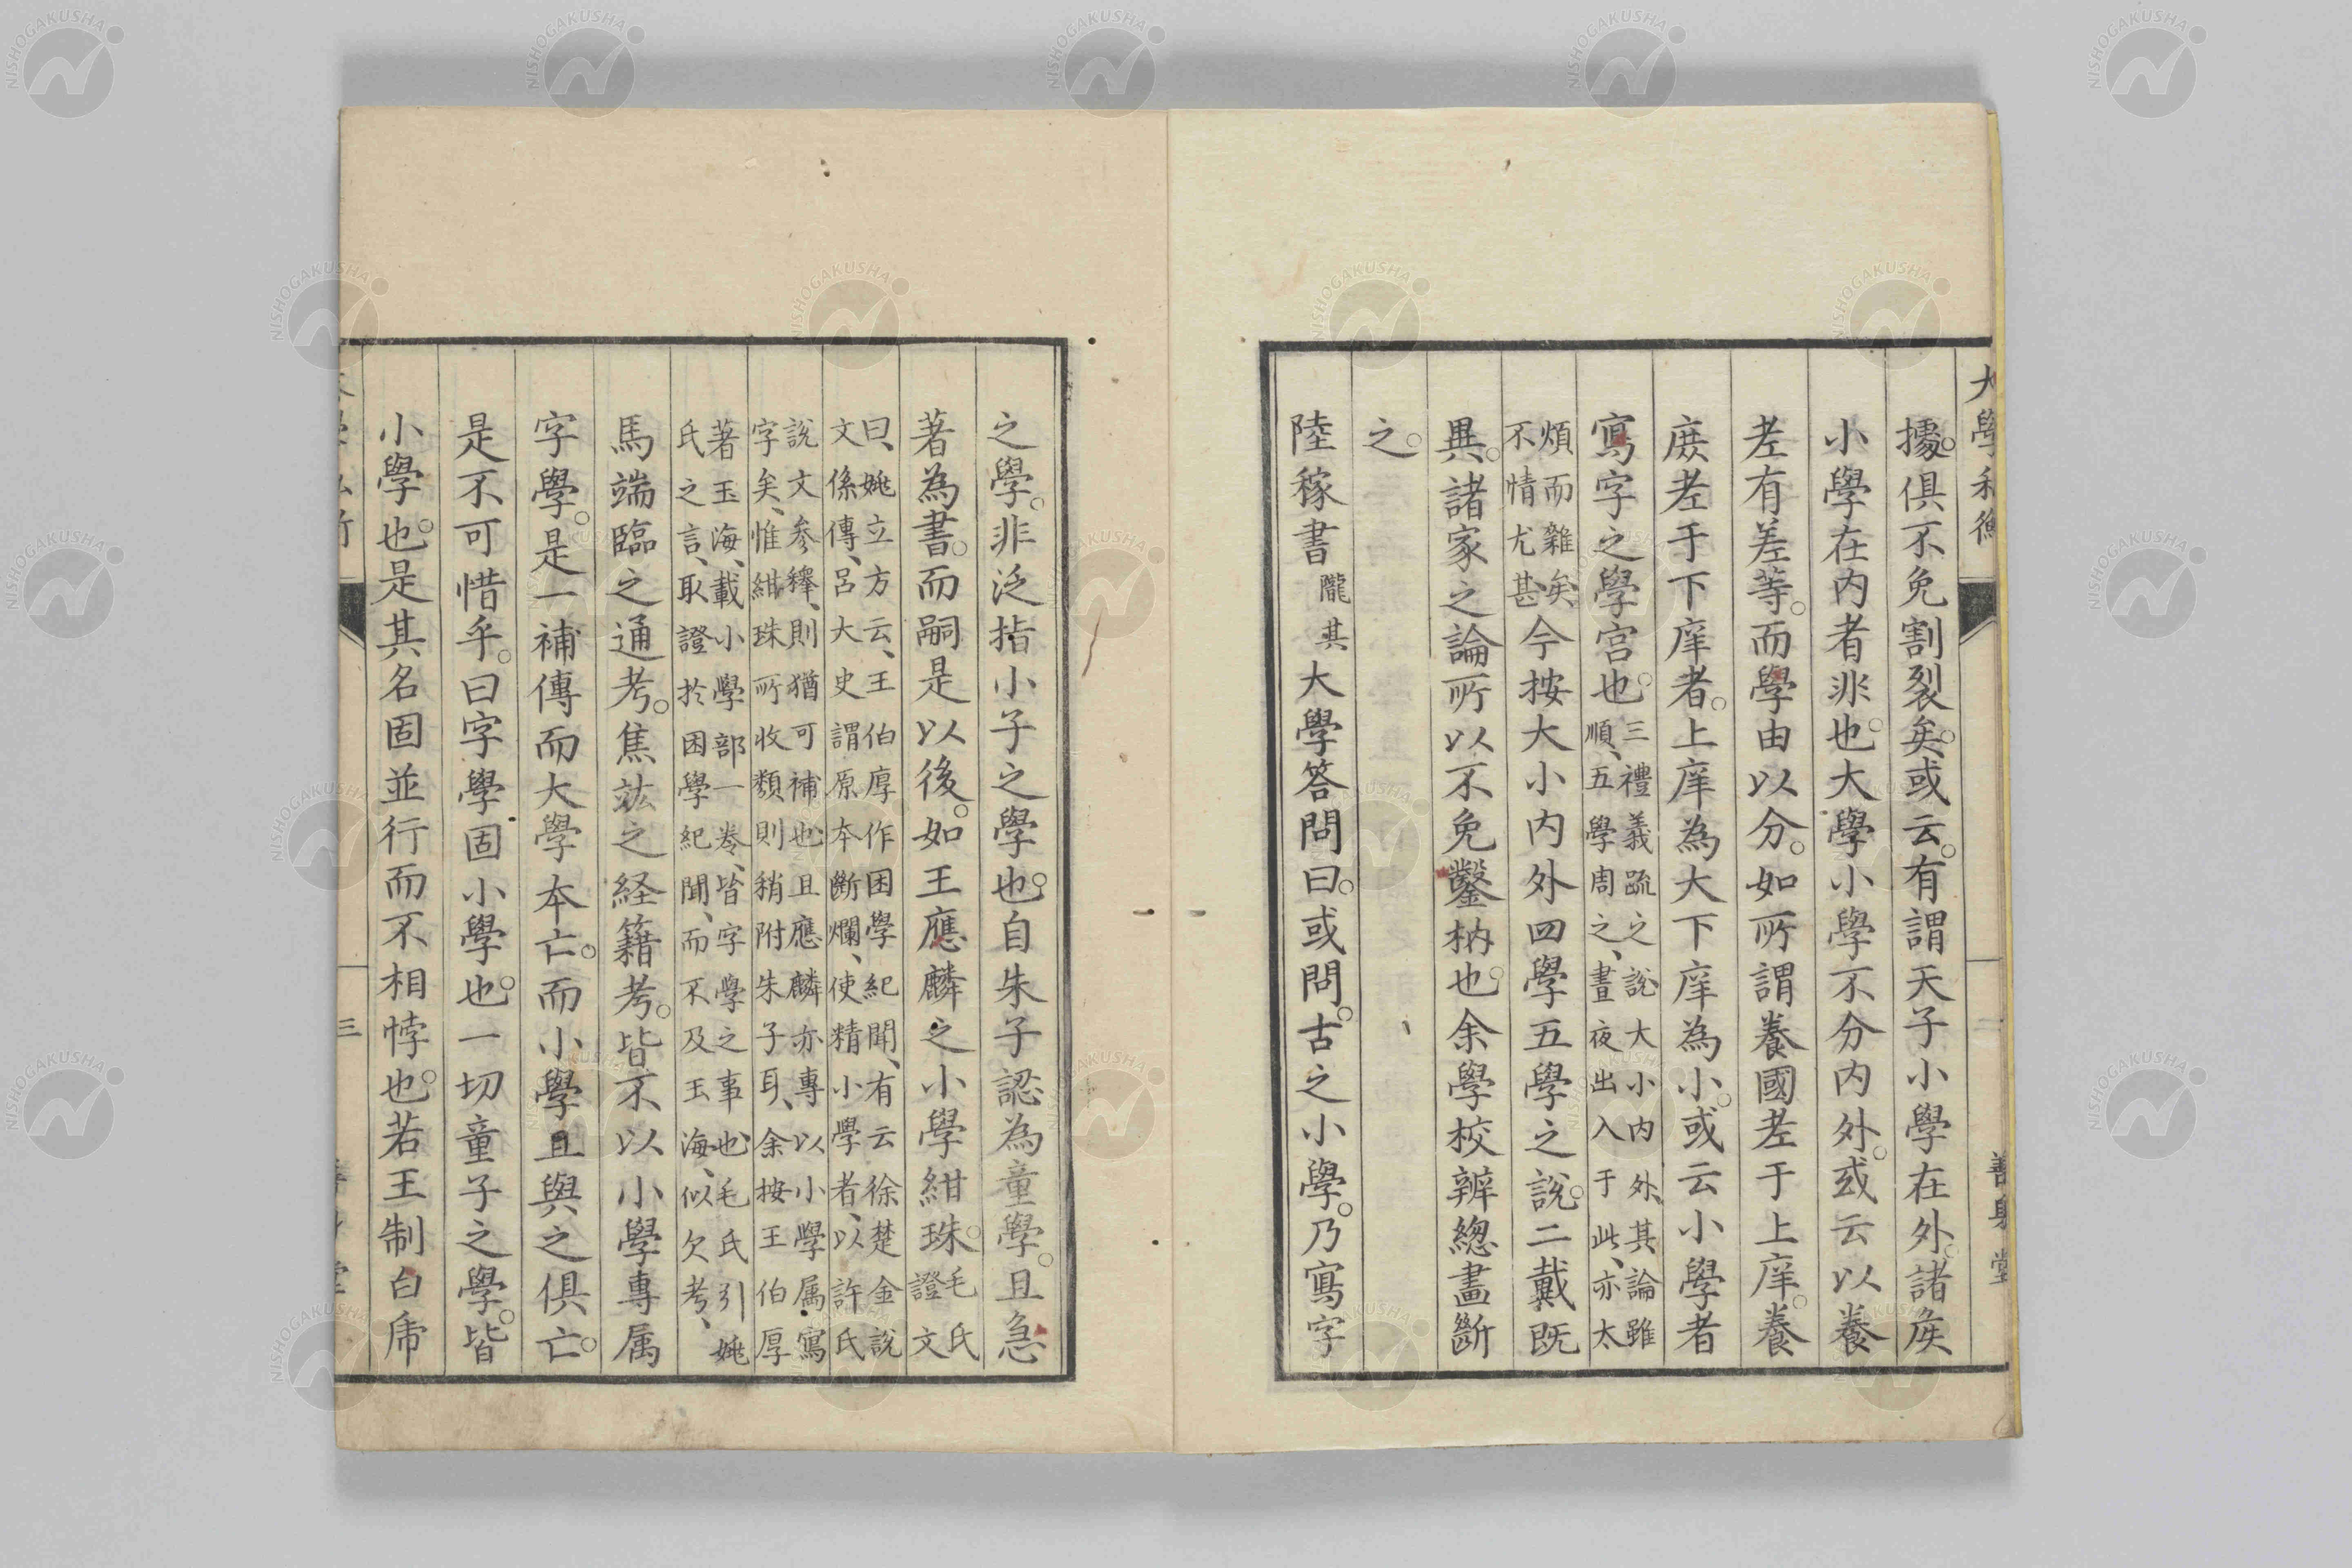 據。俱不免割裂矣。或云。有謂天子小學在外。諸矦
小學在內者非也。大學小學不分內外。或云以養
老有差等。而學由以分。如所謂養國老于上庠。養
庶老于下庠者。上庠為大下庠為小。或云小學者
寫字之學宮也。三禮義疏之說大小内外、其論雖
順、五學周之、晝夜出入于此、亦太
煩而雜矣、
不情尤甚、今按大小内外四學五學之說。二戴既
異。諸家之論所以不免鑿枘也。余學校辨緫畫斷
之。
陸稼書隴其大學答問曰。或問。古之小學。乃寫字
之學。非泛指小子之學也。自朱子認為童學。且急
著為書。而嗣是以後。如王應麟之小學紺珠。毛氏
證文
曰、姚立方云、王伯厚作困學紀聞、有云徐楚金說
文係傳、呂大史謂原本斷爛、使精小學者、以許氏
說文參繹、則猶可補也、且應麟亦專以小學属寫
字矣、惟紺珠所收類則稍附朱子耳、余按王伯厚
著玉海、載小學部一卷、皆字學之事也、毛氏引姚
氏之言、取證於困學紀聞、而不及玉海、似欠考、
馬端臨之通考。焦竑之経籍考。皆不以小學專属
字學。是一補傳而大學本亡。而小學且與之俱亡。
是不可惜乎。曰字學固小學也。一切童子之學。皆
小學也。是其名固並行而不相悖也。若王制白乕
三
NISHOGAKUSHA